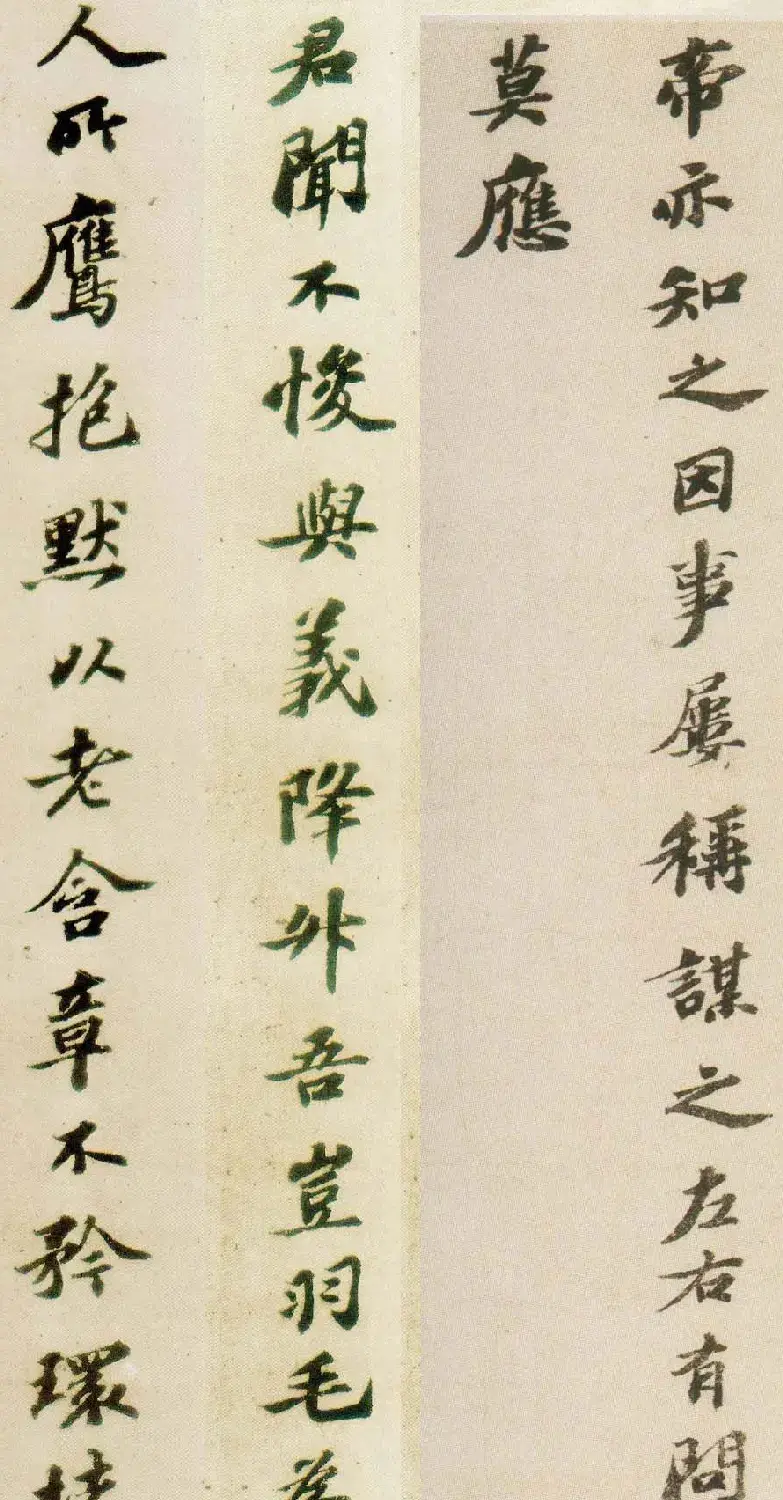 帝亦知之因事屢稱謀之左右有問
莫應
君聞不悛與義降升吾豈羽毛
人所鷹抱默以老含章不矜環